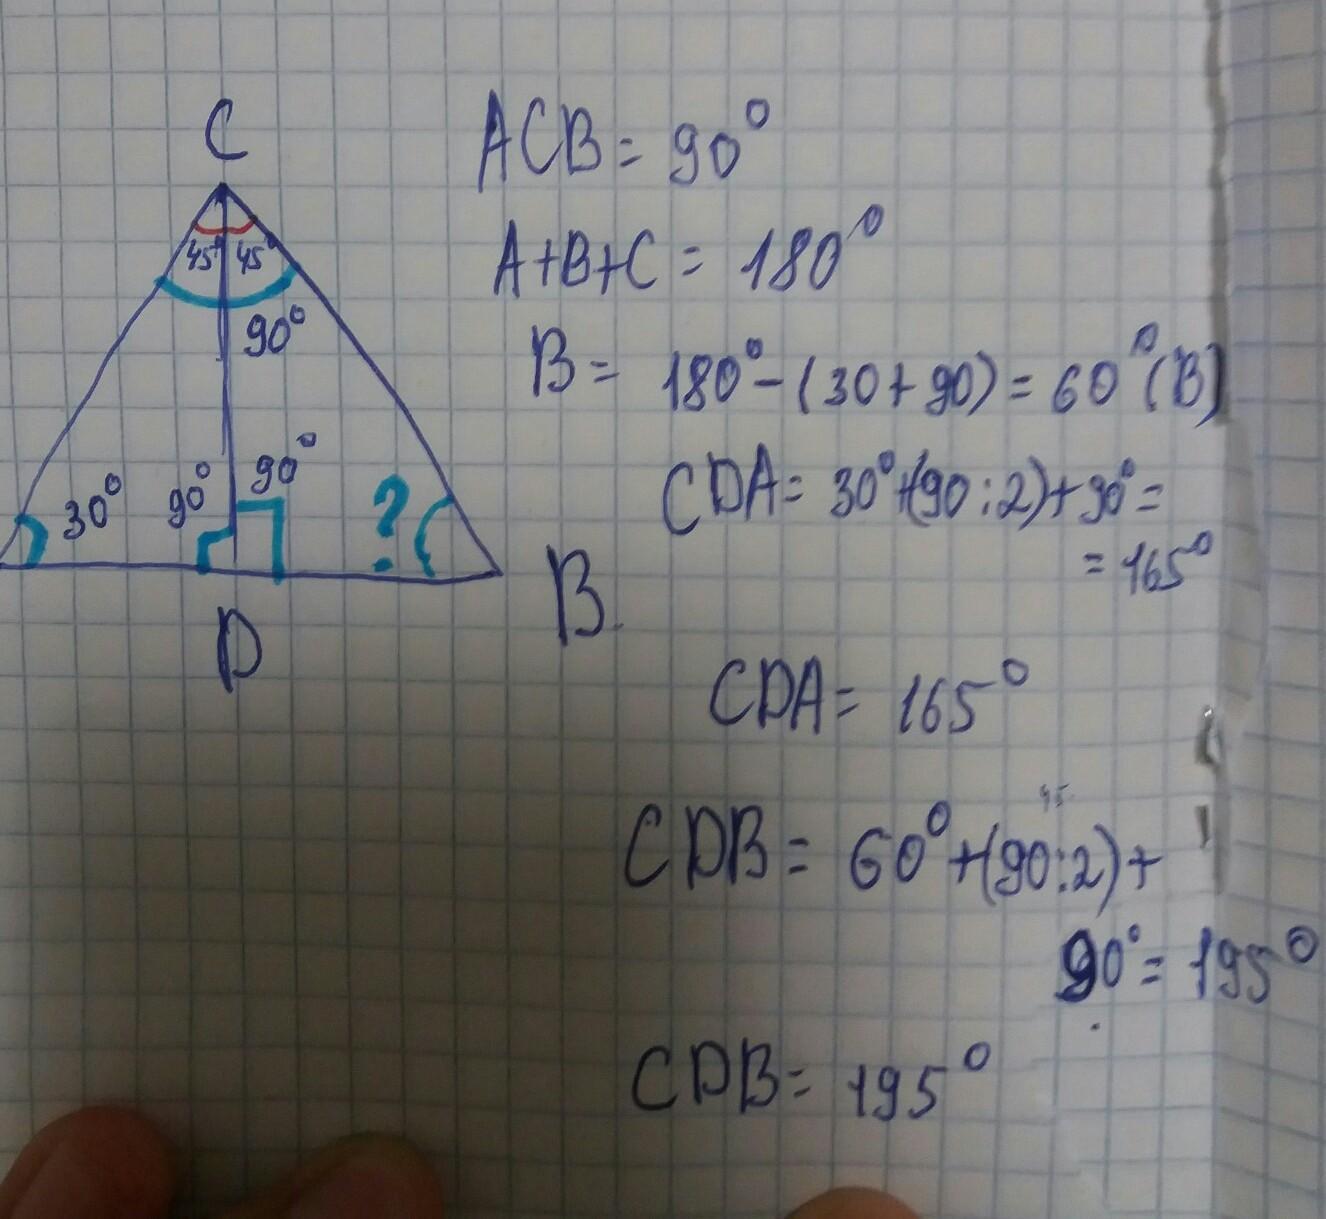 C
45° 45°
90°
30° 90° 90° ?
D
B
ACB = 90°
A+B+C = 180°
B = 180° - (30 + 90) = 60° (B)
CDA = 30° + (90 : 2) + 90° =
= 165°
CDA = 165°
45
CDB = 60° + (90 : 2) +
90° = 195°
CDB = 195°